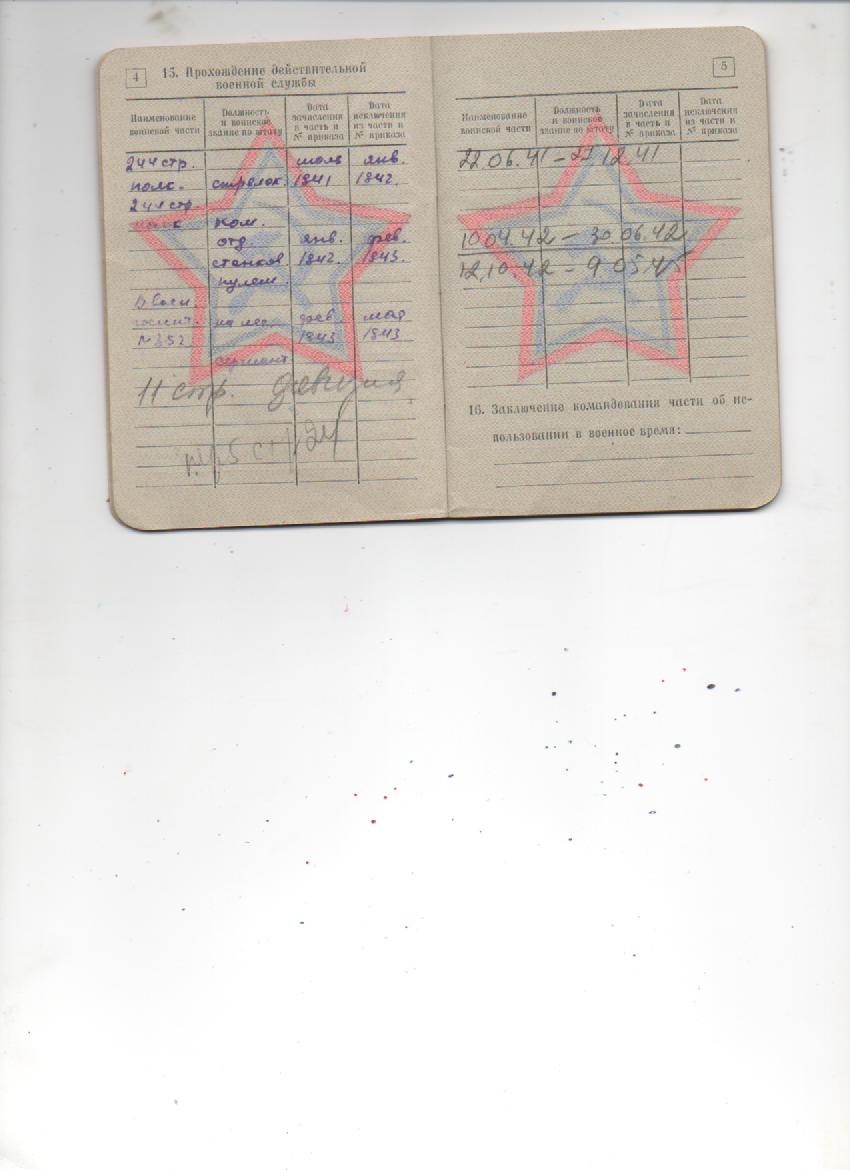 4
15. Прохождение действительной
военной службы
Наименование
воинской части
Должность
и воинское
звание по штату
Дата
зачисления
в часть и
№ приказа
Дата
исключения
из части и
№ приказа
244 стр. июль янв.
полк. стрелок. 1941 1942.
244 стр.
полк ком.
отд. янв. фев.
станков. 1942. 1943.
пулем.
госпит. на леч. фев. мая
1943 1943
сержант
11 стр. дивизия
5
Наименование
воинской части
Должность
и воинское
звание по штату
Дата
зачисления
в часть и
№ приказа
Дата
исключения
из части и
№ приказа
22.06.41 – 27.12.41
10.04.42 – 30.06.42
12.10.42 – 9.05.45
16. Заключение командования части об ис-
пользовании в военное время: